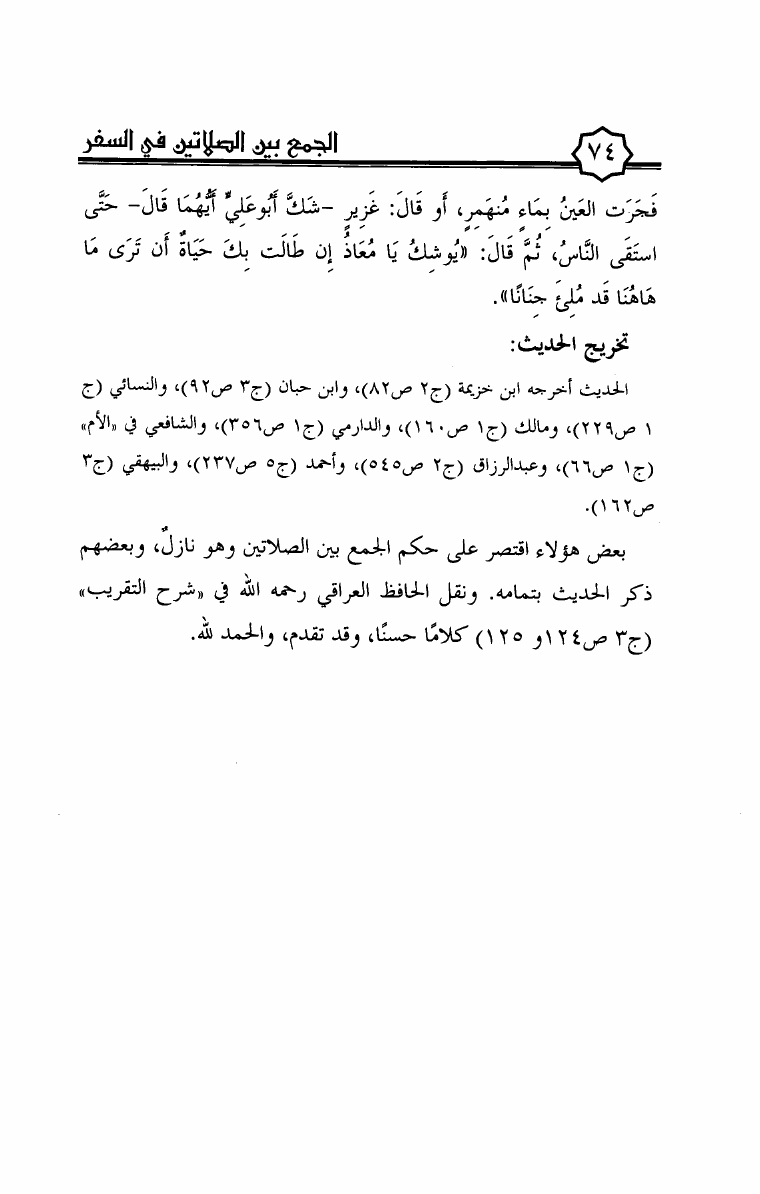 ٧٤ الجمع بين الصلاتين في السفر
فَجَرَت العَينُ بِمَاءٍ مُنهَمِرٍ، أَو قَالَ: غَزِيرٍ -شَكَّ أَبُوعَلِيٍّ أَيُّهُمَا قَالَ- حَتَّى
استَقَى النَّاسُ، ثُمَّ قَالَ: «يُوشِكُ يَا مُعَاذُ إِن طَالَت بِكَ حَيَاةٌ أَن تَرَى مَا
هَاهُنَا قَد مُلِئَ جِنَانًا».
تخريج الحديث:
الحديث أخرجه ابن خزيمة (ج٢ ص٨٢)، وابن حبان (ج٣ ص٩٢)، والنسائي (ج
١ ص٢٢٩)، ومالك (ج١ ص١٦٠)، والدارمي (ج١ ص٣٥٦)، والشافعي في «الأم»
(ج١ ص٦٦)، وعبدالرزاق (ج٢ ص٥٤٥)، وأحمد (ج٥ ص٢٣٧)، والبيهقي (ج٣
ص١٦٢).
بعض هؤلاء اقتصر على حكم الجمع بين الصلاتين وهو نازلٌ، وبعضهم
ذكر الحديث بتمامه. ونقل الحافظ العراقي رحمه الله في «شرح التقريب»
(ج٣ ص١٢٤و ١٢٥) كلامًا حسنًا، وقد تقدم، والحمد لله.